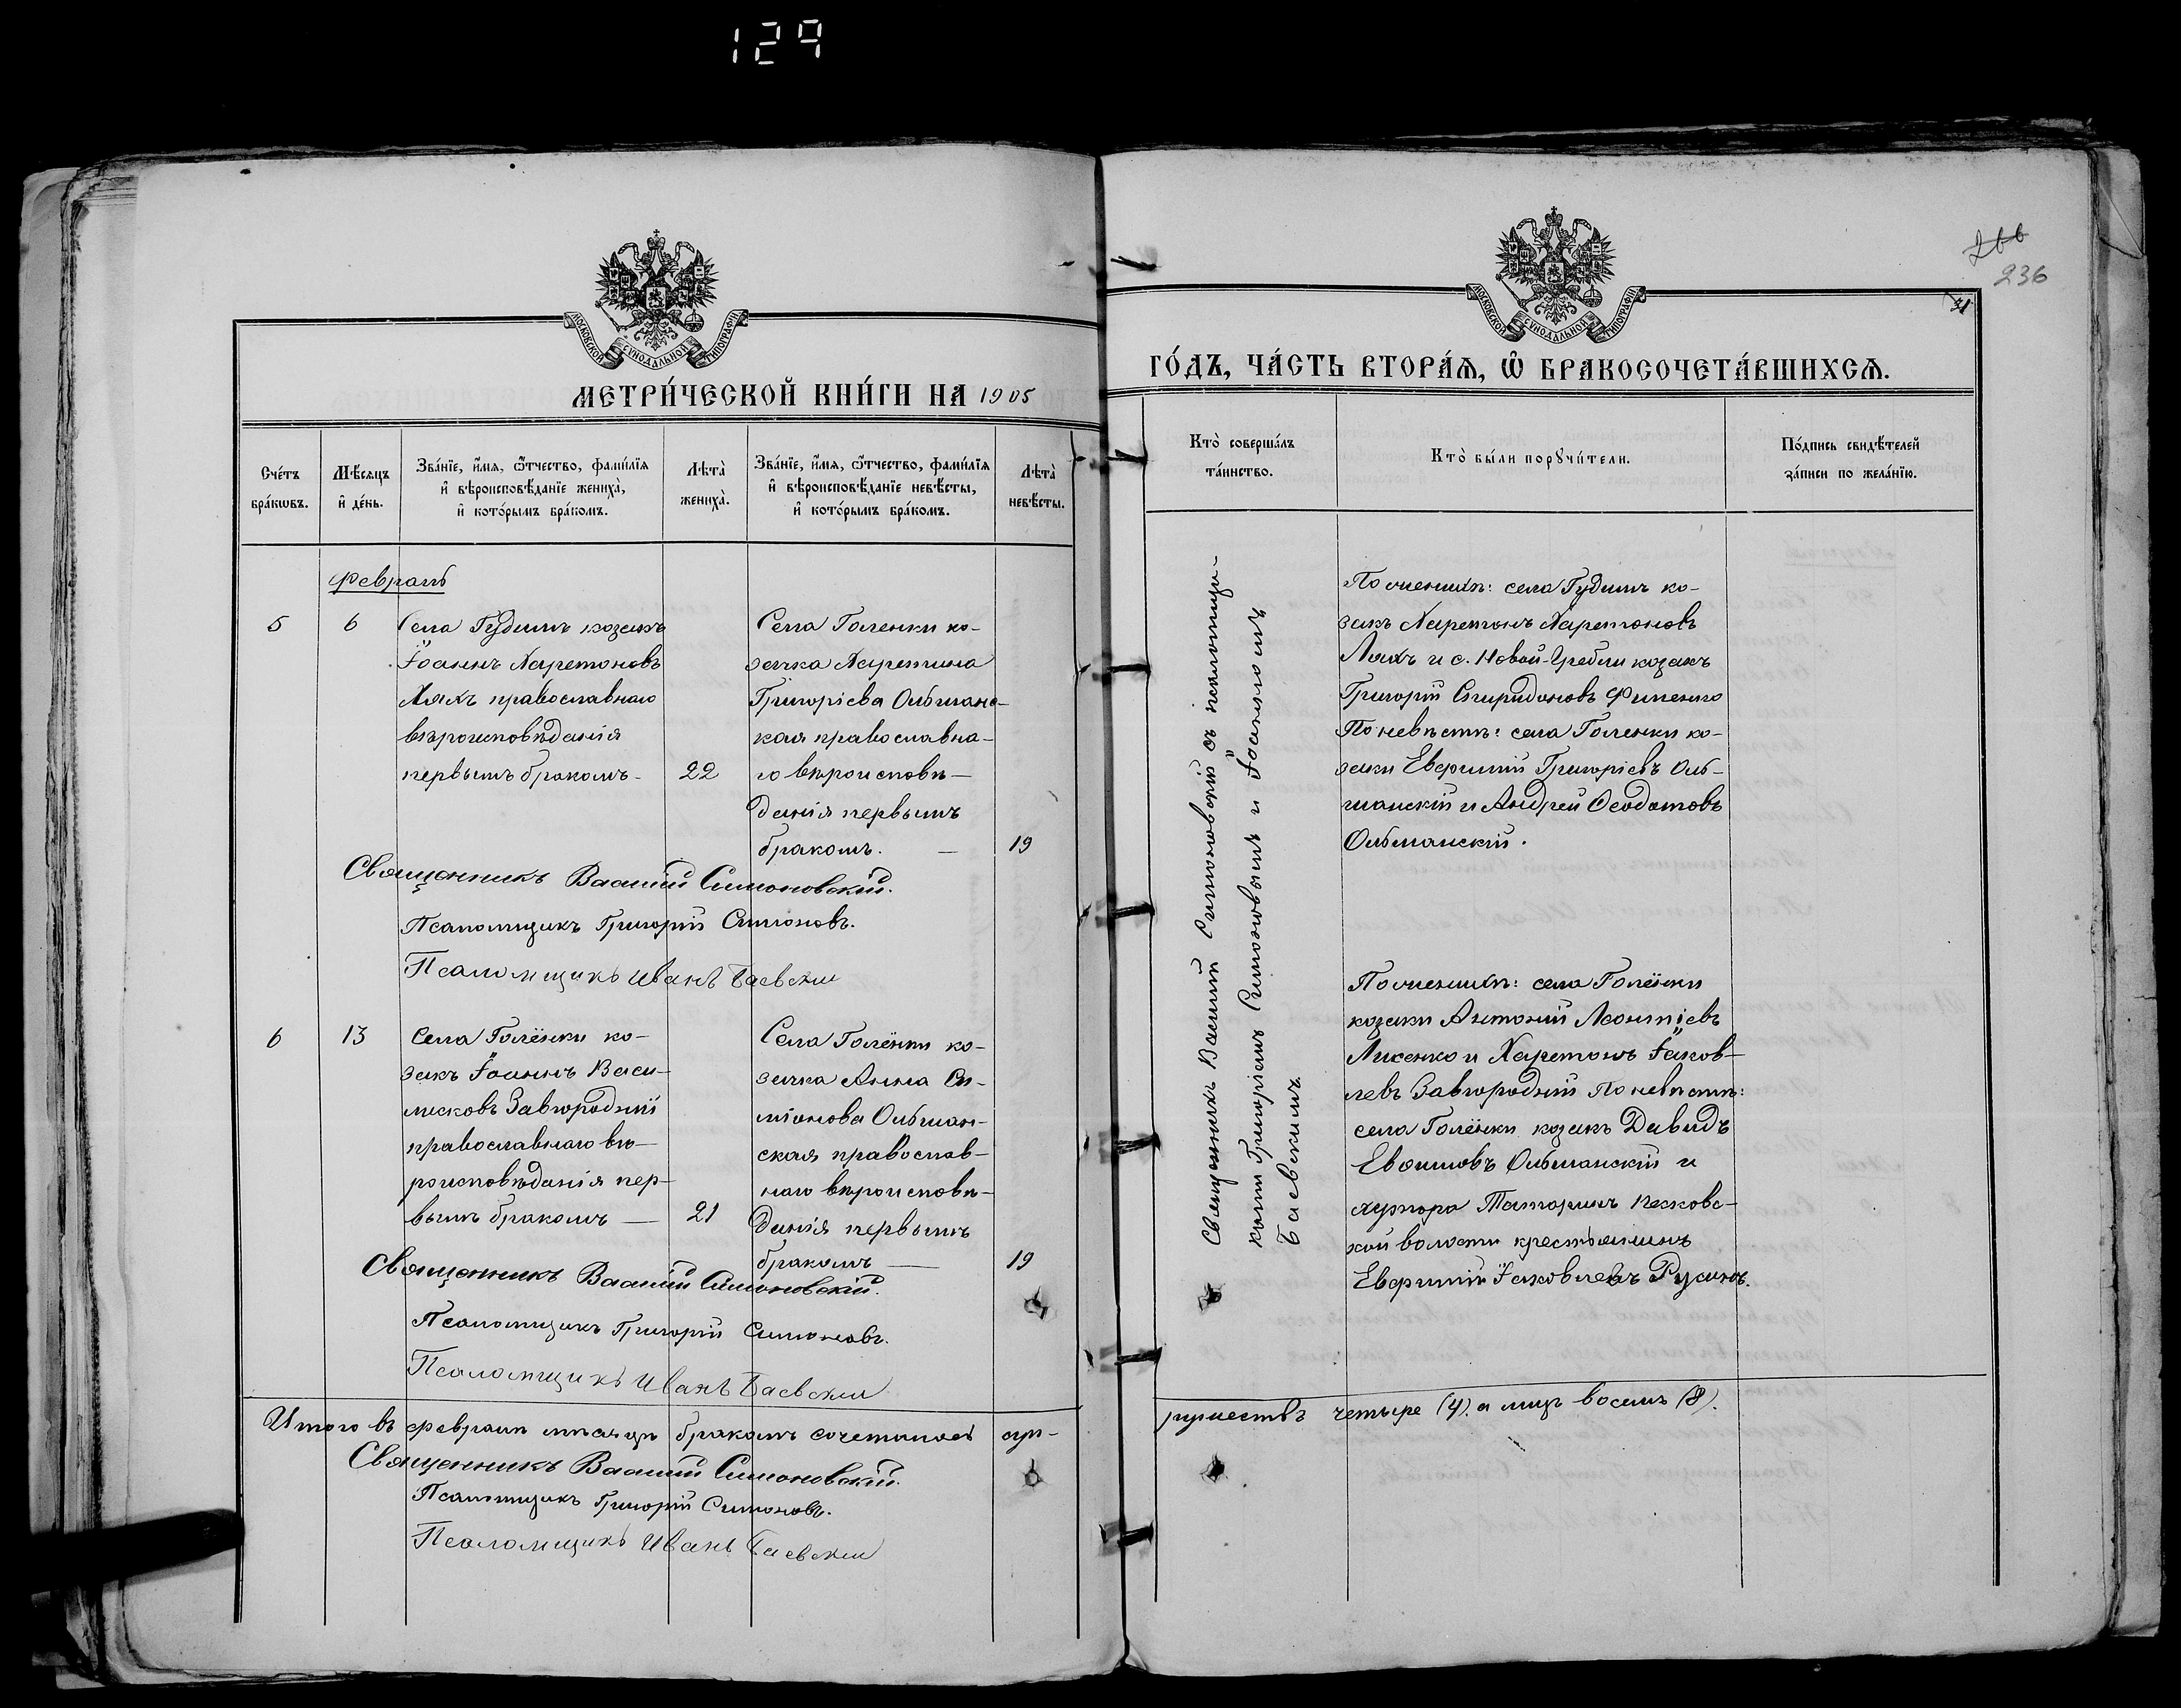 129
МОСКОВСКОЙ СѴНОДАЛЬНОЙ ТИПОГРАФІИ
МЕТРИ́ЧЕСКОЙ КНИ́ГИ НА 1905
Сче́тъ бра́кѡвъ.
Мѣ́сяцъ и҆ де́нь.
Зва́нїе, и҆́мя, ѻ҆́тчество, фами́лїя
и҆ вѣроисповѣ́данїе жениха̀,
и҆ кото́рымъ бра́комъ.
Лѣта̀ жениха̀.
Зва́нїе, и҆́мя, ѻ҆́тчество, фами́лїя
и҆ вѣроисповѣ́данїе невѣ́сты,
и҆ кото́рымъ бра́комъ.
Лѣта̀ невѣ́сты.
Февраль
5
6
Села Гудимъ козакъ
Іоаннъ Харитоновъ
Ляхъ православнаго
вѣроисповѣданія
первымъ бракомъ -
22
Села Голенки ко-
зачка Харитина
Григоріева Ольшанс-
кая православна-
го вѣроисповѣ-
данія первымъ
бракомъ. —
19
Священникъ Василій Симоновскій.
Псаломщикъ Григорій Симоновъ.
Псаломщикъ Иванъ Баевский
6
13
Села Голёнки ко-
закъ Іоаннъ Васи-
лисковъ Завгородній
православнаго вѣ-
роисповѣданія пер-
вымъ бракомъ —
21
Села Голёнки ко-
зачка Анна Си-
мо́нова Ольшан-
ская православ-
наго вѣроисповѣ-
данія первымъ
бракомъ —
19
Священникъ Василій Симоновскій.
Псаломщикъ Григорій Симоновъ.
Псаломщикъ Иванъ Баевский
Итого въ февралѣ мѣсяцѣ бракомъ сочеталось суп-
Священникъ Василій Симоновскій.
Псаломщикъ Григорій Симоновъ.
Псаломщикъ Иванъ Баевский
266
236
31
МОСКОВСКОЙ СѴНОДАЛЬНОЙ ТИПОГРАФІИ
ГО́ДЪ, ЧА́СТЬ ВТОРА́Я, Ѡ҆ БРАКОСОЧЕТА́ВШИХСЯ.
Кто̀ соверша́лъ
та́инство.
Кто̀ бы́ли порꙋчи́тели.
По́дпись свидѣ́телей
за́писи по жела́нїю.
Священникъ Василій Симоновскій съ псаломщи-
ками Григоріемъ Симоновымъ и Іоанномъ
Баевскимъ
По женихѣ: села Гудимъ ко-
закъ Харитонъ Харитоновъ
Ляхъ и с. Новой-Гребли козакъ
Григорій Спиридоновъ Филенко
По невѣстѣ: села Голенки ко-
заки Евфимій Григоріевъ Оль-
шанскій и Андрей Ѳеодотовъ
Ольшанскій.
По женихѣ: села Голёнки
козаки Антоній Леонтіевъ
Лисенко и Харитонъ Іаков-
левъ Завгородній По невѣстѣ:
села Голёнки козакъ Давидъ
Евѳимовъ Ольшанскій и
хутора Песковс-
кой волости крестьянинъ
Евфимій Іаковлевъ Русинъ.
ружествъ четыре (4). а лицъ восемь (8).